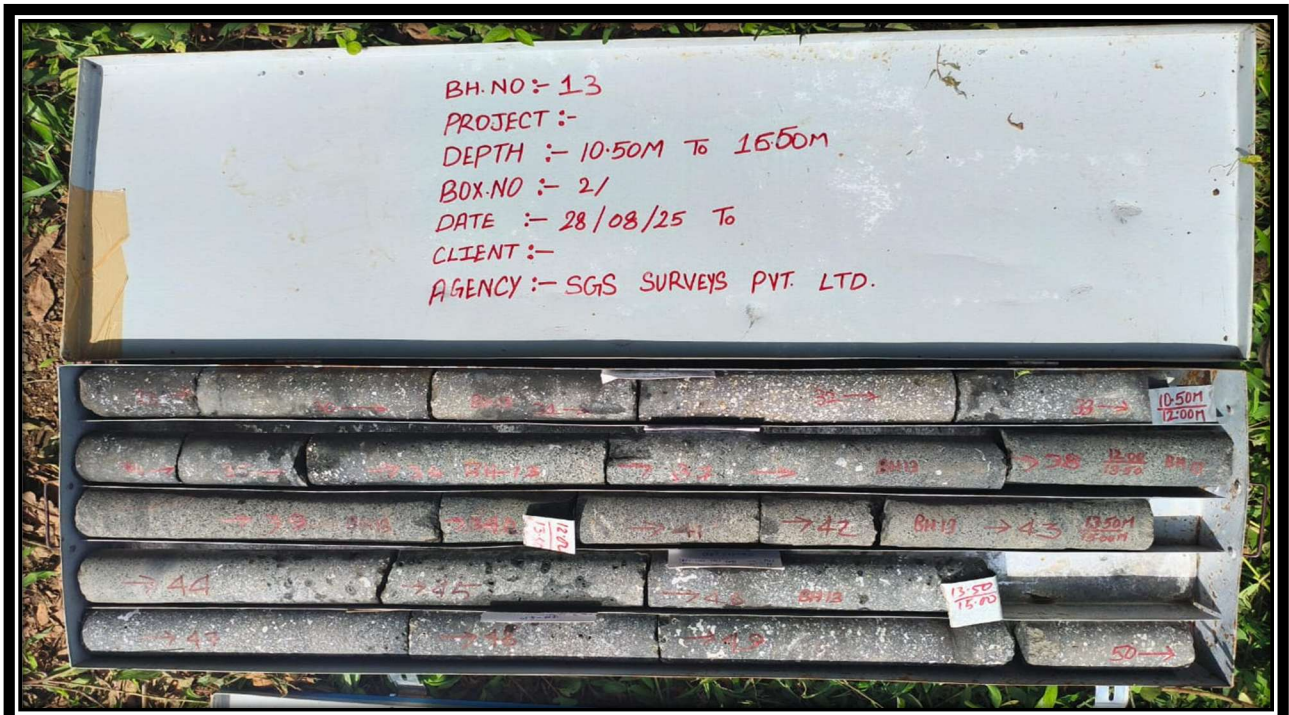 BH. NO :- 13
PROJECT :-
DEPTH :- 10.50M To 16.50M
BOX.NO :- 2/
DATE :- 28/08/25 To
CLIENT :-
AGENCY :- SGS SURVEYS PVT. LTD.
32 →
33 →
10.50M
12.00M
→ 36 BH-13
→ 37 → BH13
→ 38 12.00
13.50 BH 13
→ 39
→ 41
→ 42
BH-13 → 43 13.50M
15.00M
→ 44
→ 45
→ 46 BH13
13.50
15.00
→ 47
→ 48
→ 49
50 →